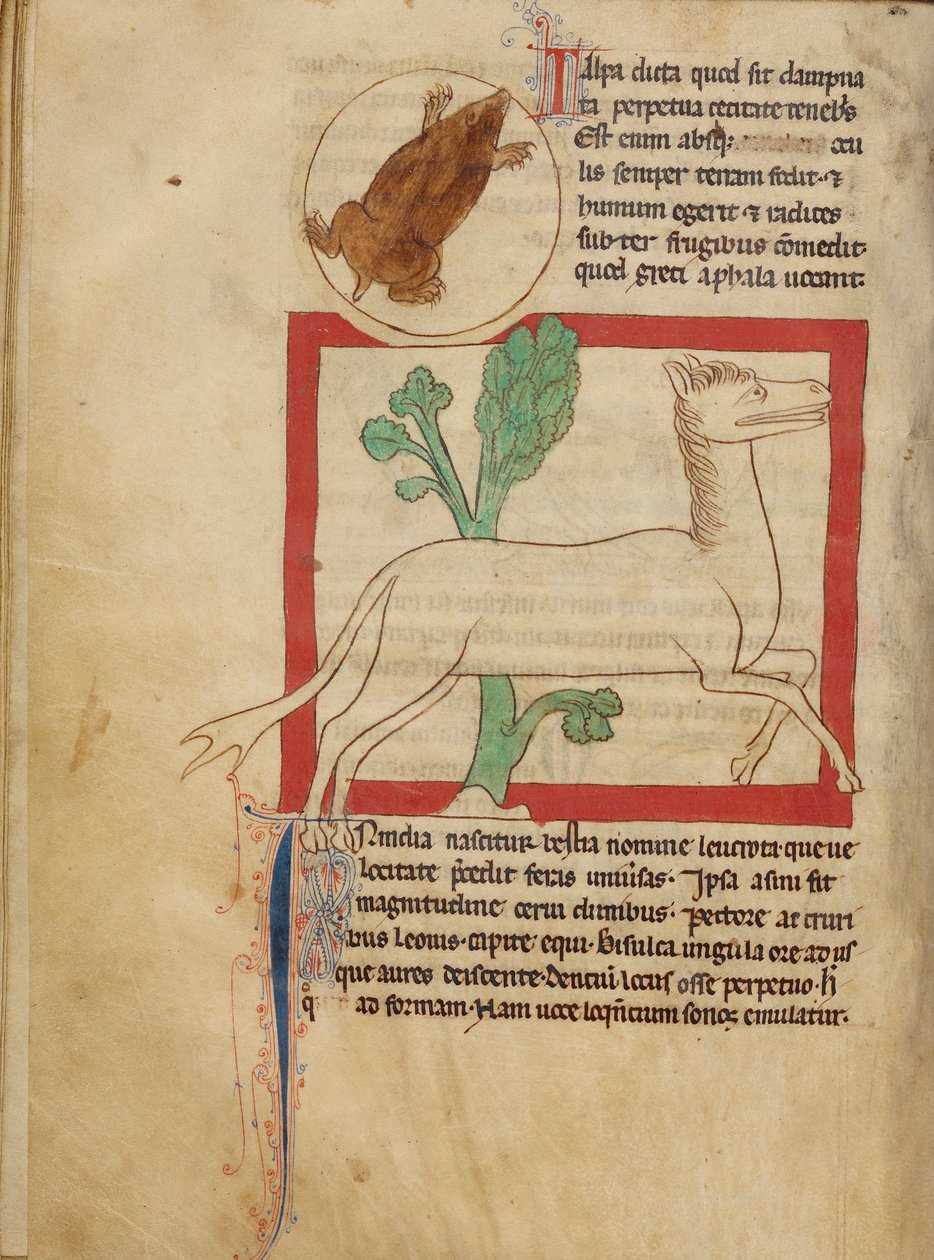 Talpa dicta quod sit dampna
ta perpetua cecitate tenebs
Est enim absq; ocu
lis semper terram fodit ⁊
humum egerit ⁊ radices
subter frugibus cōmedit
quod greci aphala uocant.
INindia nascitur bestia nomine leucrota que ue
locitate p̄cedit feras uniu̾sas. Ipsa asini fit
magnitudine cerui clunibus. Pectore ac cruri
bus leonis. capite equi. Bisulca ungula ore ad us
que aures deiscente. Dentiū locus osse perpetuo. h̄
q ad formam. Nam uoce loqn̄tium sonos emulatur.